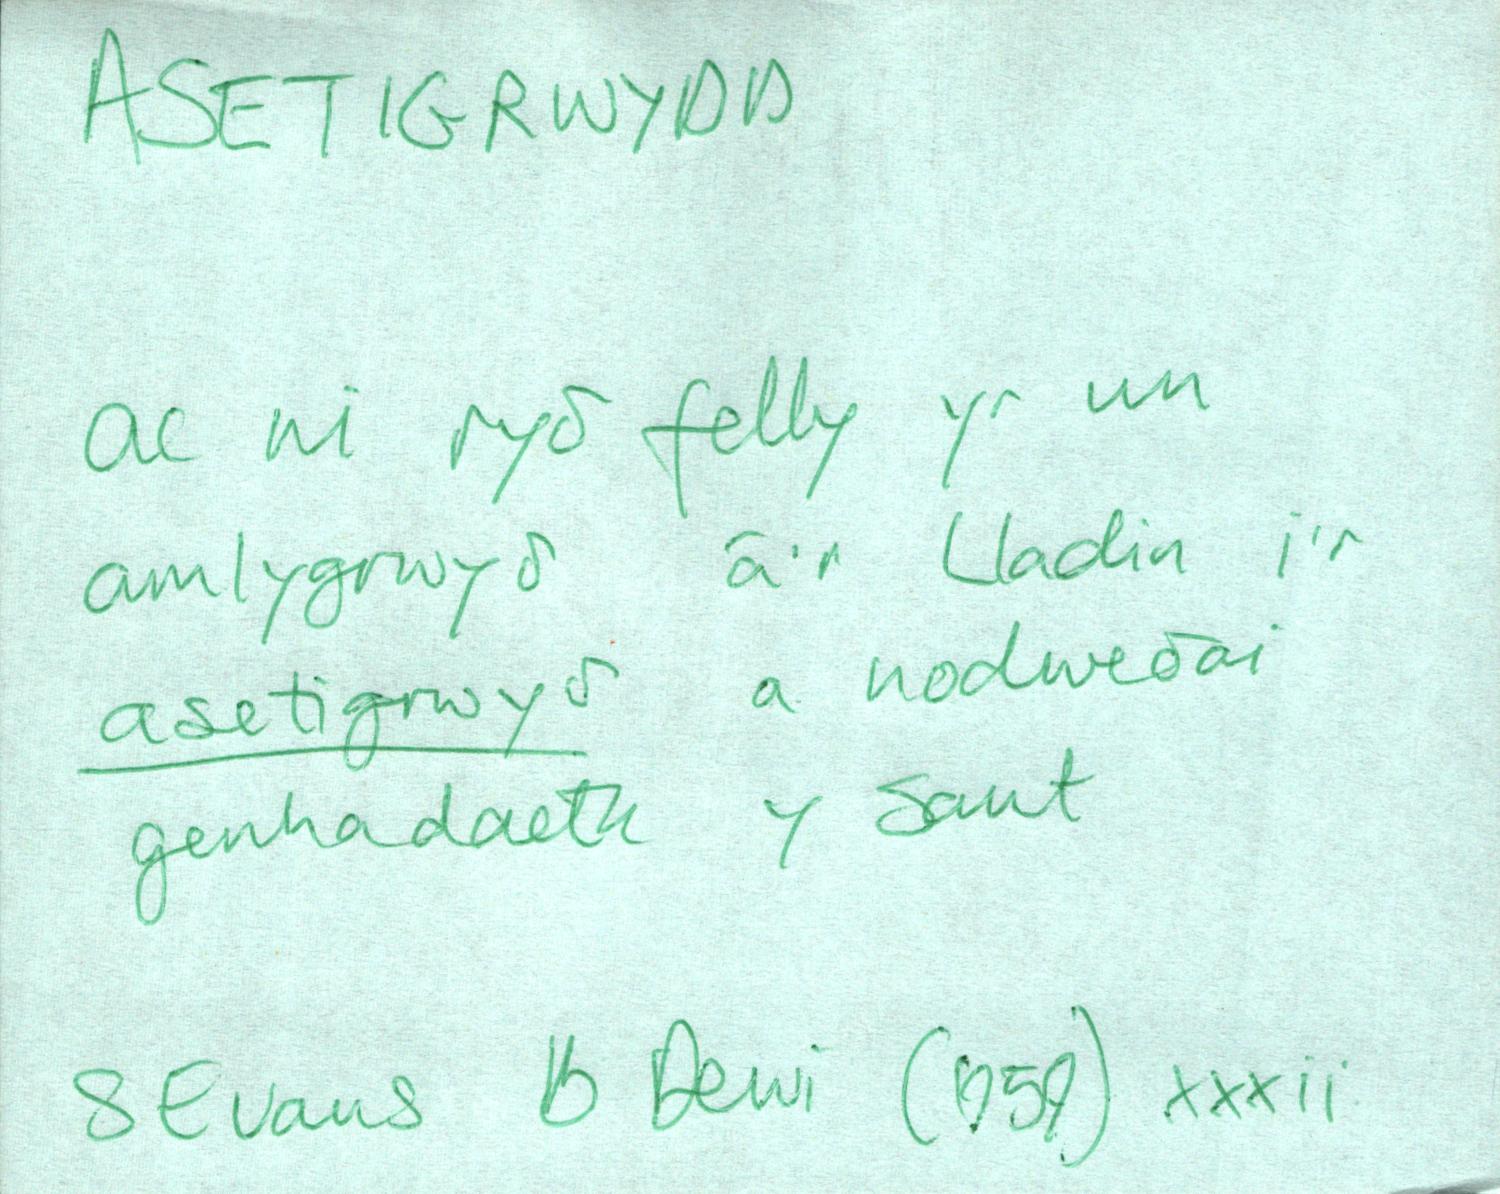 ASETIGRWYDD
ac ni ryδ felly yr un
amlygrwyδ â'r Lladin i'r
asetigrwyδ a nodweδai
genhadaeth y sant
S Evans B Dewi (1959) xxxii